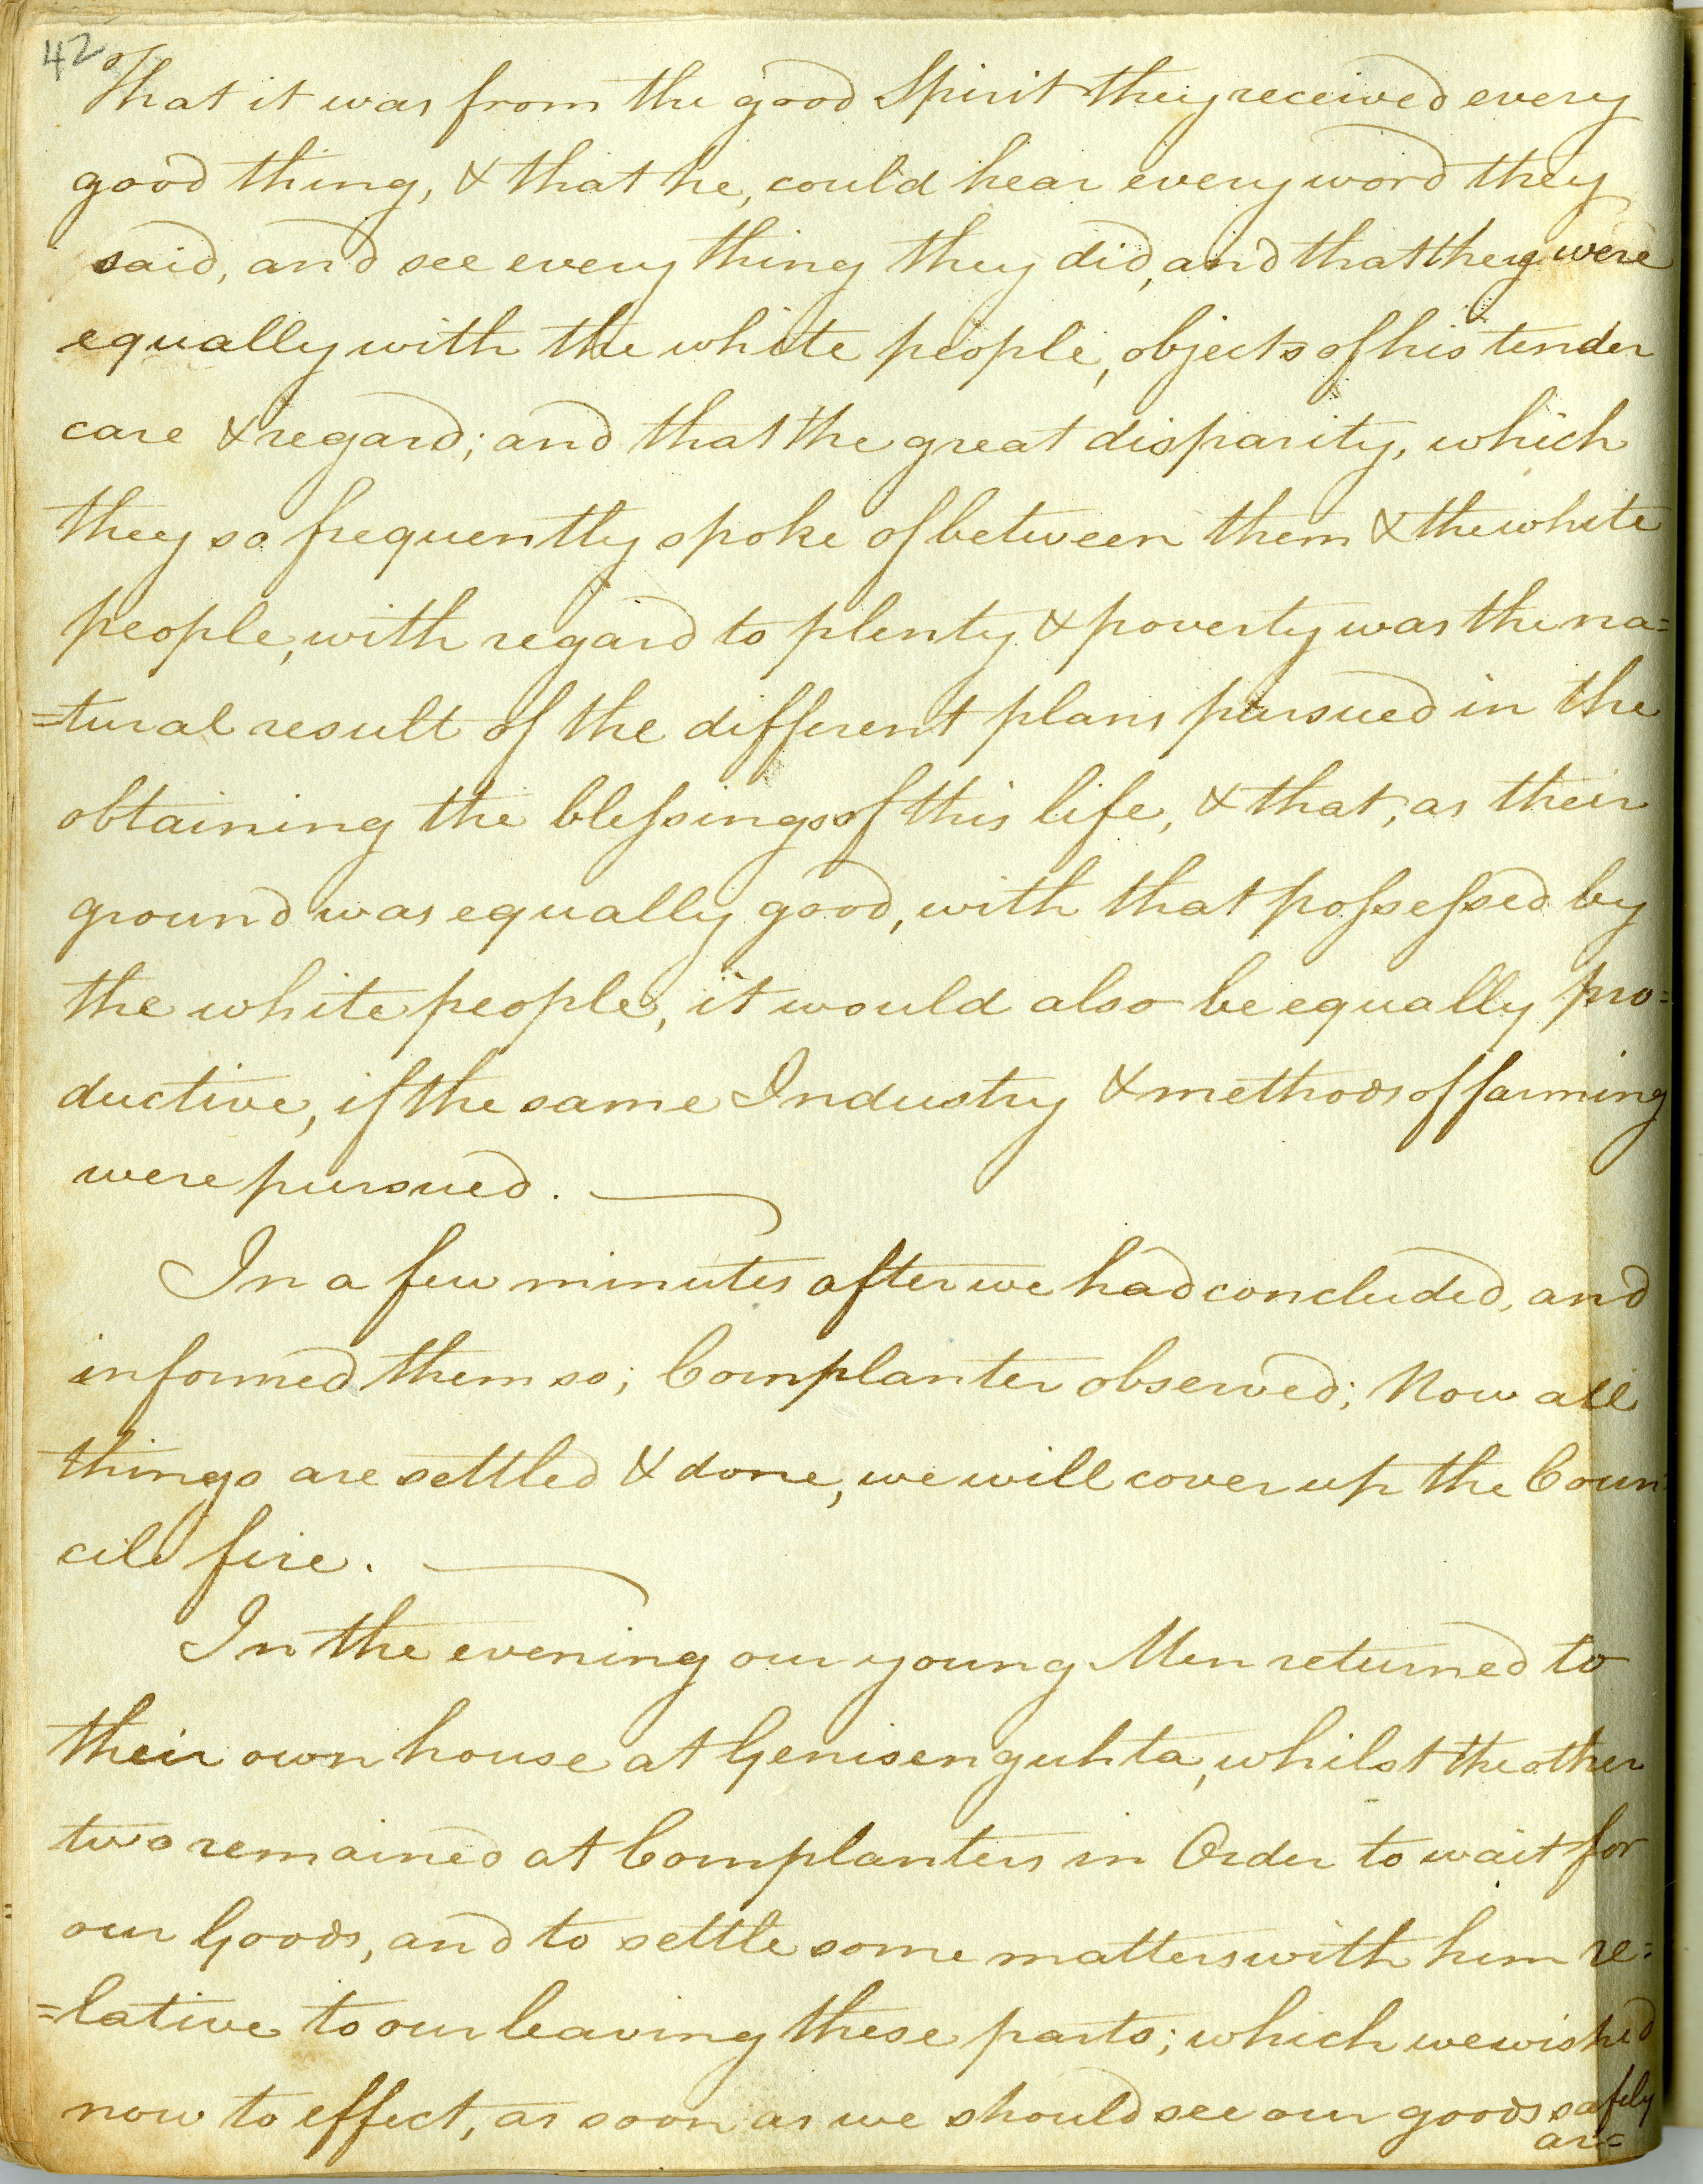 42
That it was from the good Spirit they received every
good thing, & that he, could hear every word they
said, and see every thing they did, and that they were
equally with the white people, objects of his tender
care & regard; and that the great disparity, which
they so frequently spoke of between them & the white
people, with regard to plenty & poverty was the na=
=tural result of the different plans pursued in the
obtaining the blessings of this life, & that, as their
ground was equally good, with that possessed by
the white people, it would also be equally pro=
ductive, if the same Industry & methods of farming
were pursued.
In a few minutes after we had concluded, and
informed them so; Cornplanter observed; Now all
things are settled & done, we will cover up the Coun=
cil fire.
In the evening our young Men returned to
their own house at Genisenguhta, whilst the other
two remained at Cornplanters in Order to wait for
our Goods, and to settle some matters with him re=
=lative to our leaving these parts; which we wished
now to effect, as soon as we should see our goods safely
ar=